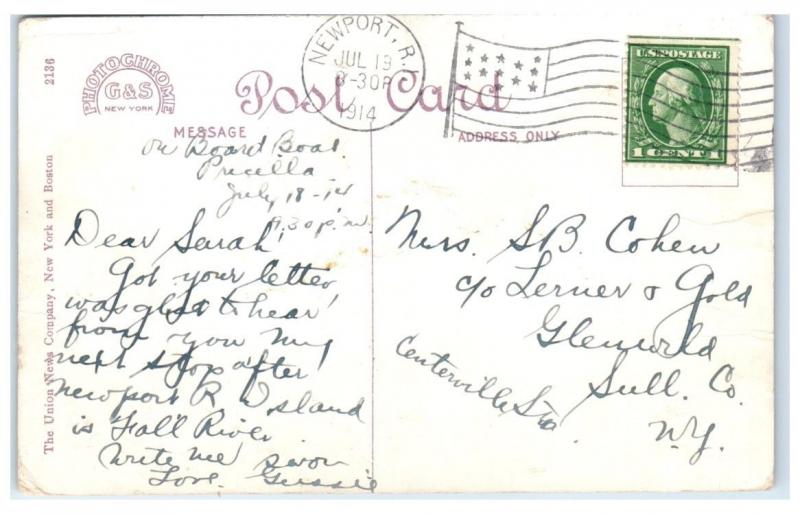 2136
PHOTOCHROME
G&S
NEW YORK
Post Card
NEWPORT, R.I.
JUL 19
8-30P
1914
U.S. POSTAGE
1 CENT 1
MESSAGE
ADDRESS ONLY
The Union News Company, New York and Boston
on Board Boat
Pricella
July 18-14
9.30 p.m.
Dear Sarah,
Got your letter
was glad to hear
from you my
next stop after
Newport R Island
is Fall River
Write me soon
Love Gussie
Mrs. S B. Cohen
c/o Lerner & Gold
Glenwild
Sull. Co.
N.Y.
Centerville Sta.